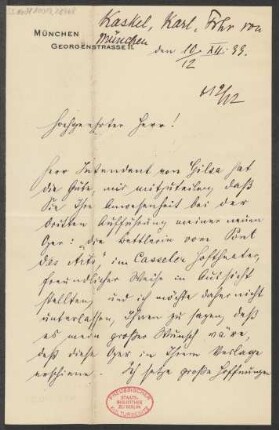 Kaskel, Karl, Frhr von
München
MÜNCHEN
GEORGENSTRASSE
den 10. XII. 99.
12
Hochgeehrter Herr!
Herr Intendant von Gilsa hat
die Güte, mir mitzuteilen, daß
Sie Ihre Anwesenheit bei der
dritten Aufführung meiner neuen
Oper: „die Bettlerin vom Pont
des Arts" im Casseler Hoftheater,
freundlicher Weise in Aussicht
stellten, und ich möchte daher nicht
unterlassen, Ihnen zu sagen, daß
es mein großer Wunsch wäre,
daß diese Oper in Ihrem Verlage
erschiene. Ich setze große Hoffnungen